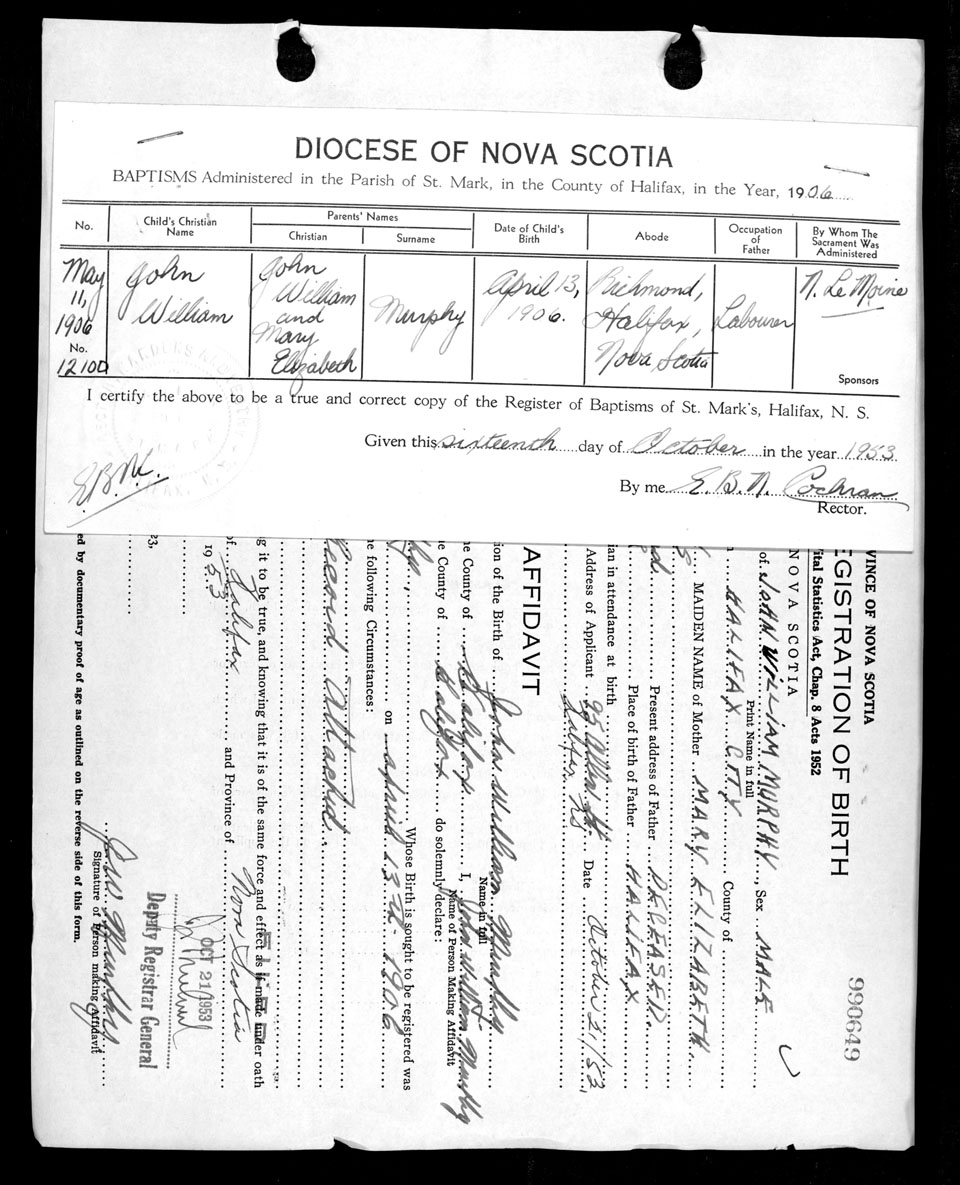 DIOCESE OF NOVA SCOTIA
BAPTISMS Administered in the Parish of St. Mark, in the County of Halifax, in the Year, 1906
No.
Child's Christian Name
Parents' Names
Christian
Surname
Date of Child's Birth
Abode
Occupation of Father
By Whom The Sacrament Was Administered
May 11, 1906
No. 1210D
John William
John William and Mary Elizabeth
Murphy
April 13, 1906.
Richmond, Halifax, Nova Scotia
Labourer
N. Le Moine
Sponsors
I certify the above to be a true and correct copy of the Register of Baptisms of St. Mark's, Halifax, N. S.
Given this sixteenth day of October in the year 1953
By me E. B. N. Cochran
Rector.
990649
VINCE OF NOVA SCOTIA
EGISTRATION OF BIRTH
ital Statistics Act, Chap. 8 Acts 1952
NOVA SCOTIA
of JOHN WILLIAM MURPHY, Sex MALE
Print Name in full
HALIFAX CITY County of
MAIDEN NAME of Mother MARY ELIZABETH
Present address of Father DECEASED.
Place of birth of Father HALIFAX
ian in attendance at birth
Address of Applicant 95 Date October 21/53
Halifax NS
AFFIDAVIT
ion of the Birth of John William Murphy
Name in full
he County of Halifax I, John William Murphy
Name of Person Making Affidavit
he County of Halifax do solemnly declare:
Whose Birth is sought to be registered was
on April 13th 1906
he following Circumstances:
Record Attached.
g it to be true, and knowing that it is of the same force and effect as if made under oath
of Halifax and Province of Nova Scotia
1953
OCT 21 1953
Deputy Registrar General
23,
J.W. Murphy
Signature of Person making Affidavit
ed by documentary proof of age as outlined on the reverse side of this form.